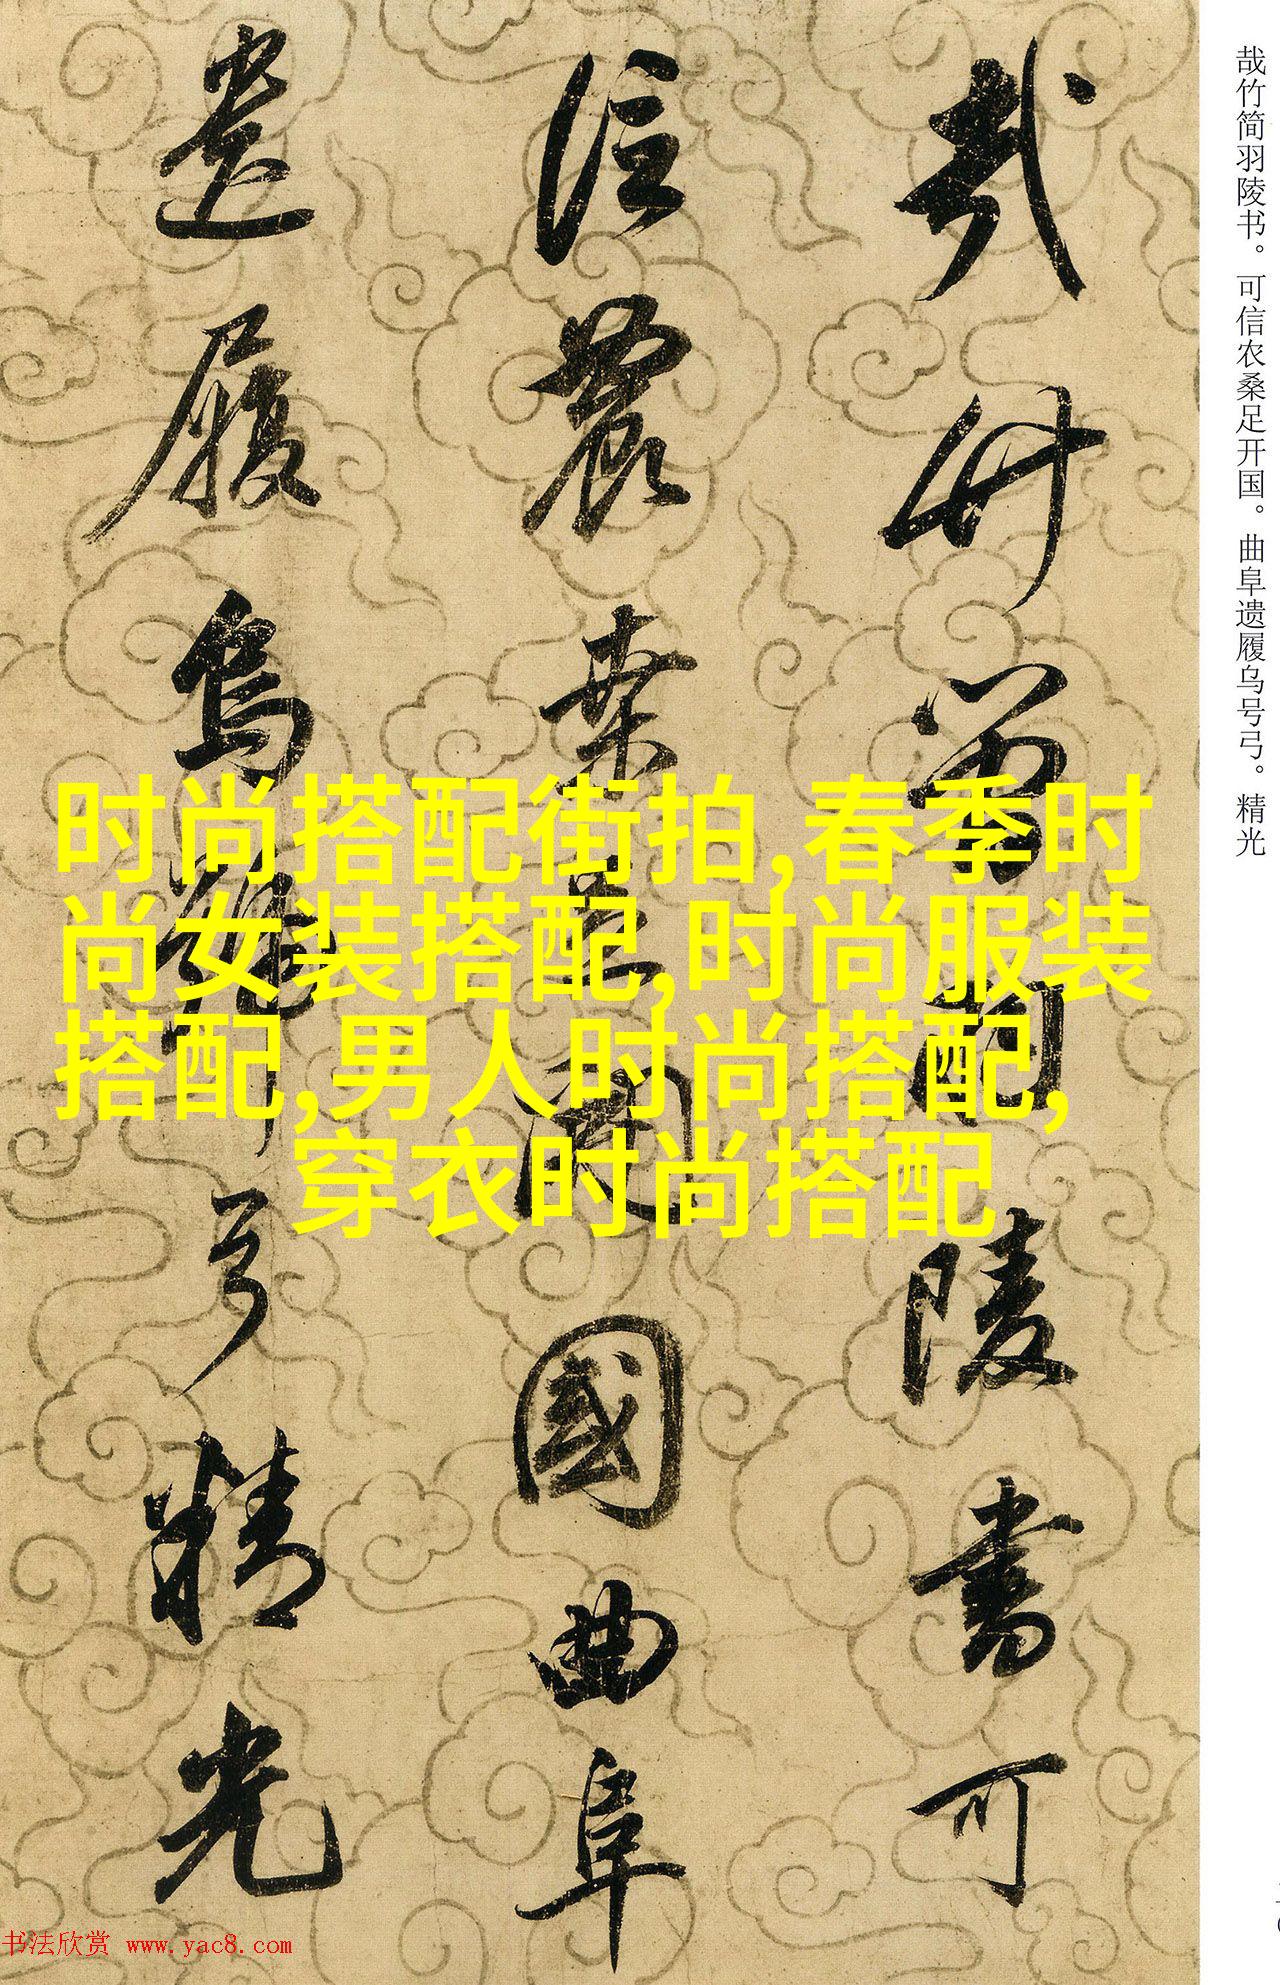 哉竹简羽陵书。可信农桑足开国。曲阜遗履乌号弓。精光
哉竹簡羽陵書可
信農桒足開國曲阜
遺履烏號弓精光
时尚搭配街拍,春季时
尚女装搭配,时尚服装
搭配,男人时尚搭配,
穿衣时尚搭配
书法欣赏 www.yac8.com